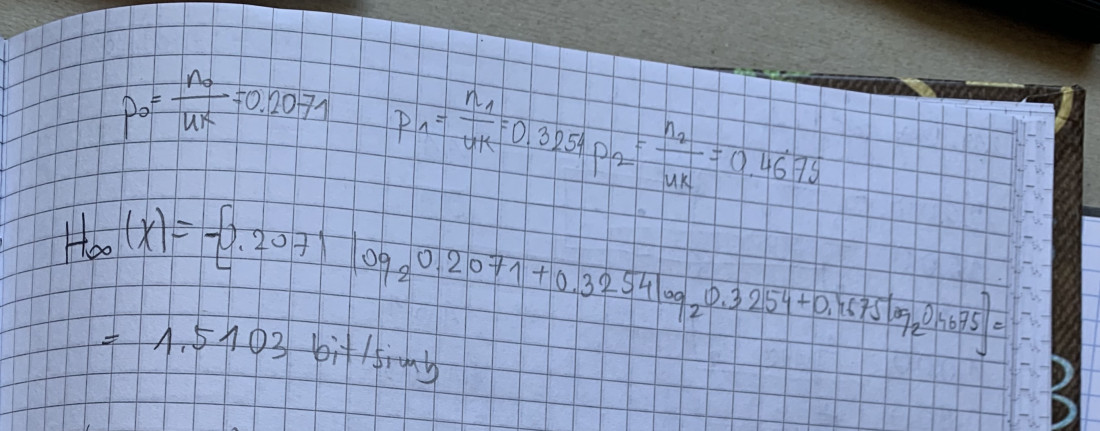 p₀ = n₀/ик = 0.2071 p₁ = n₁/ик = 0.3254 p₂ = n₂/ик = 0.4675
H∞(X) = -[0.2071 log₂0.2071 + 0.3254 log₂0.3254 + 0.4675 log₂0.4675] =
= 1.5103 bit/simb